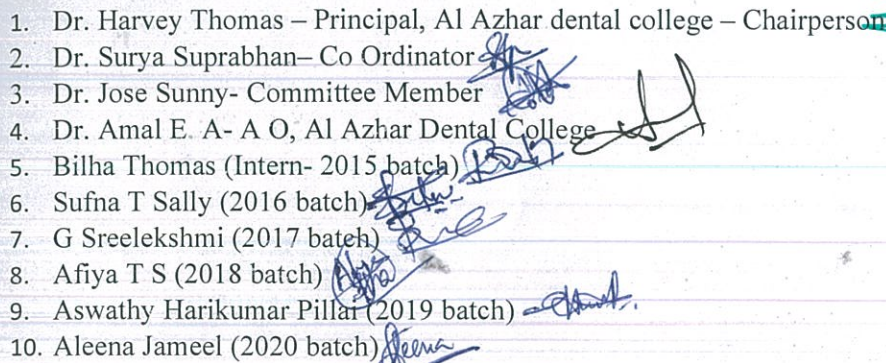 1. Dr. Harvey Thomas – Principal, Al Azhar dental college – Chairperson
2. Dr. Surya Suprabhan– Co Ordinator
3. Dr. Jose Sunny- Committee Member
4. Dr. Amal E. A- A O, Al Azhar Dental College
5. Bilha Thomas (Intern- 2015 batch)
6. Sufna T Sally (2016 batch)
7. G Sreelekshmi (2017 batch)
8. Afiya T S (2018 batch)
9. Aswathy Harikumar Pillai (2019 batch)
10. Aleena Jameel (2020 batch) Aleena